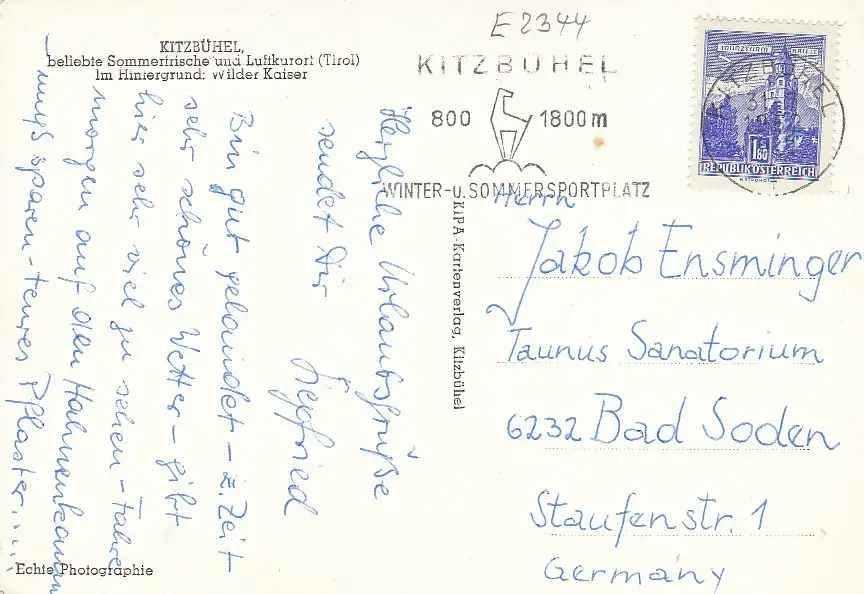 E2344
KITZBÜHEL,
beliebte Sommerfrische und Luftkurort (Tirol)
Im Hintergrund: Wilder Kaiser
KITZBÜHEL
800 1800m
WINTER- u. SOMMERSPORTPLATZ
MÜNZTURM HALL I.T.
1.80
REPUBLIK ÖSTERREICH
KITZBÜHEL
Herzliche Urlaubsgrüße
sendet Dir
Siegfried
Bin gut gelandet - z. Zeit
sehr schönes Wetter - gibt
hier sehr viel zu sehen - Fahre
morgen auf den Hahnenkamm
- muß sparen - teures Pflaster....
KIPA-Kartenverlag, Kitzbühel
Herrn
Jakob Ensminger
Taunus Sanatorium
6232 Bad Soden
Staufenstr. 1
Germany
Echte Photographie